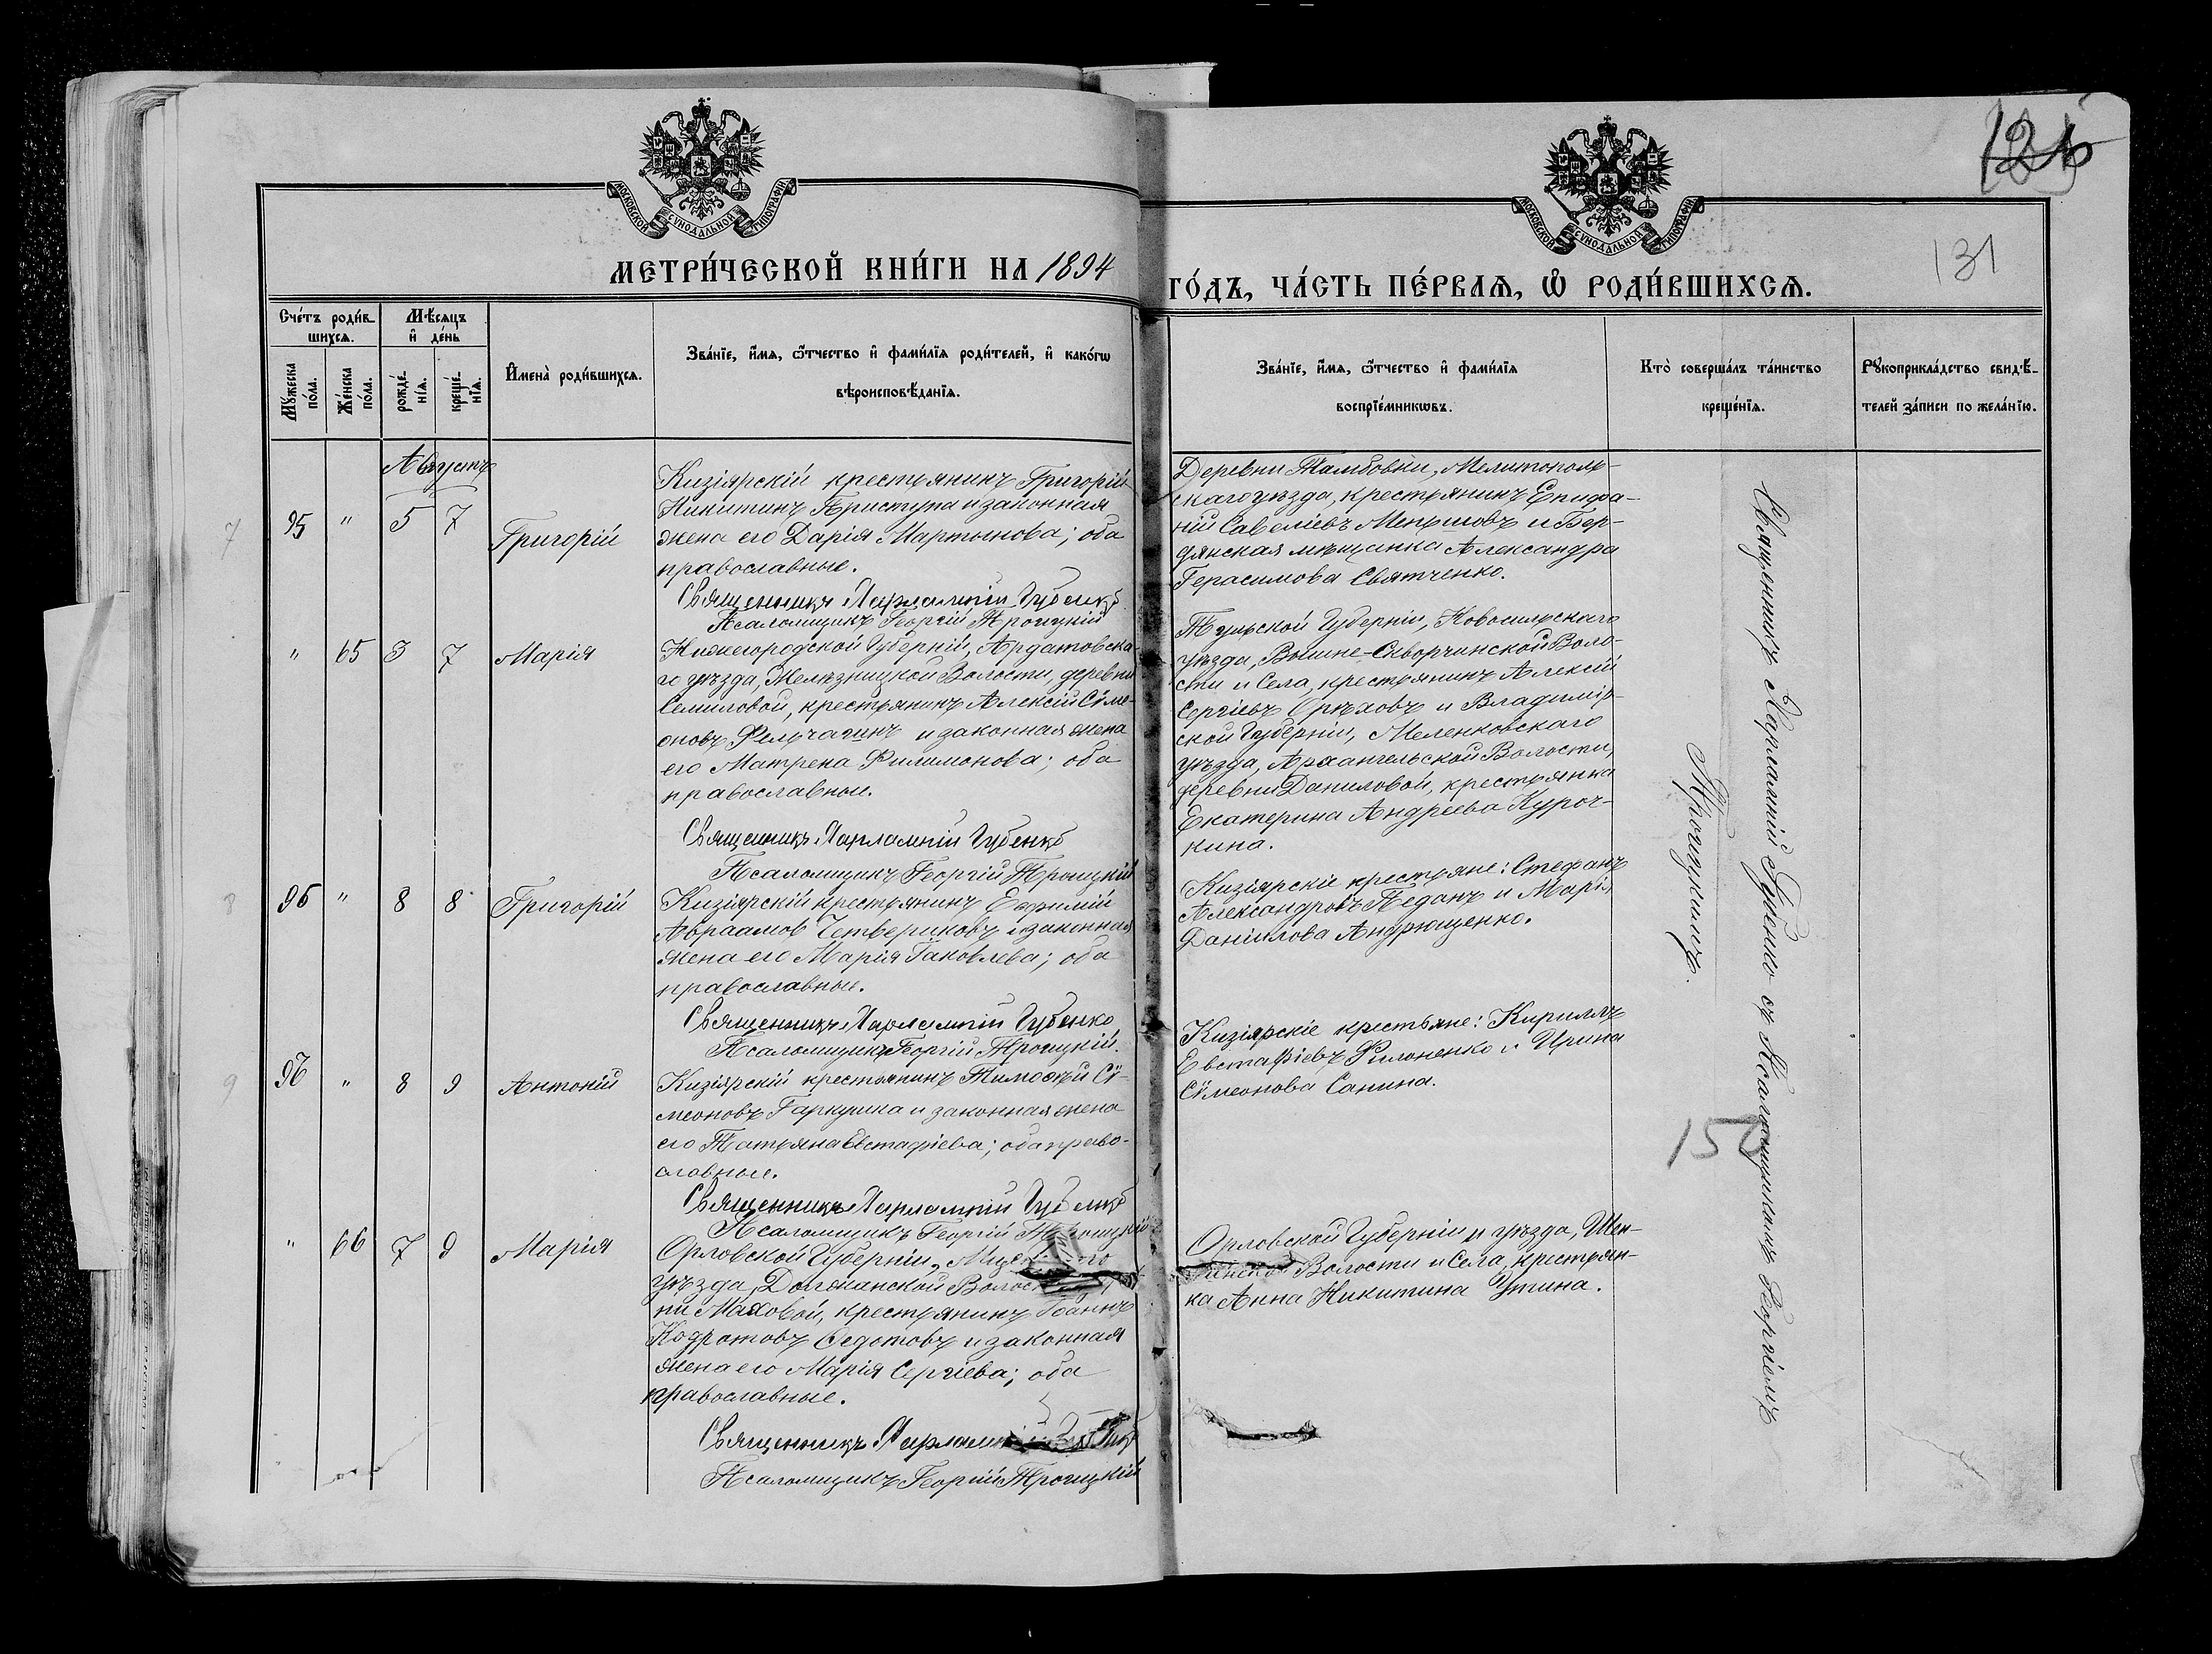 126
131
МОСКОВСКОЙ СѴНОДАЛЬНОЙ ТИПОГРАФІИ
МОСКОВСКОЙ СѴНОДАЛЬНОЙ ТИПОГРАФІИ
МЕТРИ́ЧЕСКОЙ КНИ́ГИ НА 1894
ГО́ДЪ, ЧА́СТЬ ПЕ́РВАѦ, Ѽ РОДИ́ВШИХСѦ.
Сче́тъ роди́в-
шихсѧ.
Мѣ́сѧцъ
и҆ де́нь
Мꙋ́жеска
по́ла.
Же́нска
по́ла.
рожде́-
нїѧ.
креще́-
нїѧ.
И҆мена̀ роди́вшихсѧ.
Зва́нїе, и҆́мѧ, ѻ҆́тчество и҆ фами́лїѧ роди́телей, и҆ како́гѡ
вѣроисповѣ́данїѧ.
Зва́нїе, и҆́мѧ, ѻ҆́тчество и҆ фами́лїѧ
воспрїе́мникѡвъ.
Кто̀ соверша́лъ та́инство
креще́нїѧ.
Рꙋкоприкла́дство свидѣ́-
телей за́писи по жела́нїю.
Августъ
7
95 " 5 7 Григорій
Кизіярскій крестьянинъ Григорій
Никитинъ Приступа и законная
жена его Дарія Мартынова; оба
православные.
Священникъ Харлампій Губенко
Псаломщикъ Георгій Троицкій
Деревни Тамбовки, Мелитополь-
скаго уѣзда, крестьянинъ Епифа-
ній Савеліевъ Меньшовъ и Бер-
дянская мѣщанка Александра
Герасимова Святченко.
" 65 3 7 Марія
Нижегородской Губерніи, Ардатовска-
го уѣзда, Волости, деревни
Семиловой, крестьянинъ Алексій Сѵме-
оновъ и законная жена
его Матрена Филимонова; оба
православные.
Священникъ Харлампій Губенко
Псаломщикъ Георгій Троицкій
Тульской Губерніи, Новосильскаго
уѣзда, Вышне-Скворчинской Воло-
сти и Села, крестьянинъ Алексій
Сергіевъ Орѣховъ и Владимір-
ской Губерніи, Меленковскаго
уѣзда, Архангельской Волости,
деревни Даниловой, крестьянка
Екатерина Андреева Куроч-
кина.
8
96 " 8 8 Григорій
Кизіярскій крестьянинъ Евфимій
Авраамов Четвериковъ и законная
жена его Марія Іаковлева; оба
православные.
Священникъ Харлампій Губенко
Псаломщикъ Георгій Троицкій.
Кизіярскіе крестьяне: Стефанъ
Александровъ Педанъ и Марія
Даніилова Андрющенко.
9
" 8 9 Антоній
Кизіярскій крестьянинъ Тимоѳей Сѵ-
меоновъ Гаркушка и законная жена
его Татьяна Евстафіева; оба право-
славные.
Священникъ Харлампій Губенко
Псаломщикъ Георгій Троицкій
Кизіярскіе крестьяне: Кириллъ
Евстафіевъ Филоненко и Ирина
Сѵмеонова Санина.
" 66 7 9 Марія
Орловской Губерніи,
уѣзда, Должанской
ни Маховой, крестьянинъ Іоаннъ
Кодратовъ Ѳедотовъ и законная
жена его Марія Сергіева; оба
православные.
Священникъ
Псаломщикъ Георгій Троицкій
Орловской Губерніи и уѣзда,
Волости и Села, крестьян-
ка Анна Никитина Утина.
Священникъ Харлампій Губенко съ Псаломщикомъ Георгіемъ
Троицкимъ.